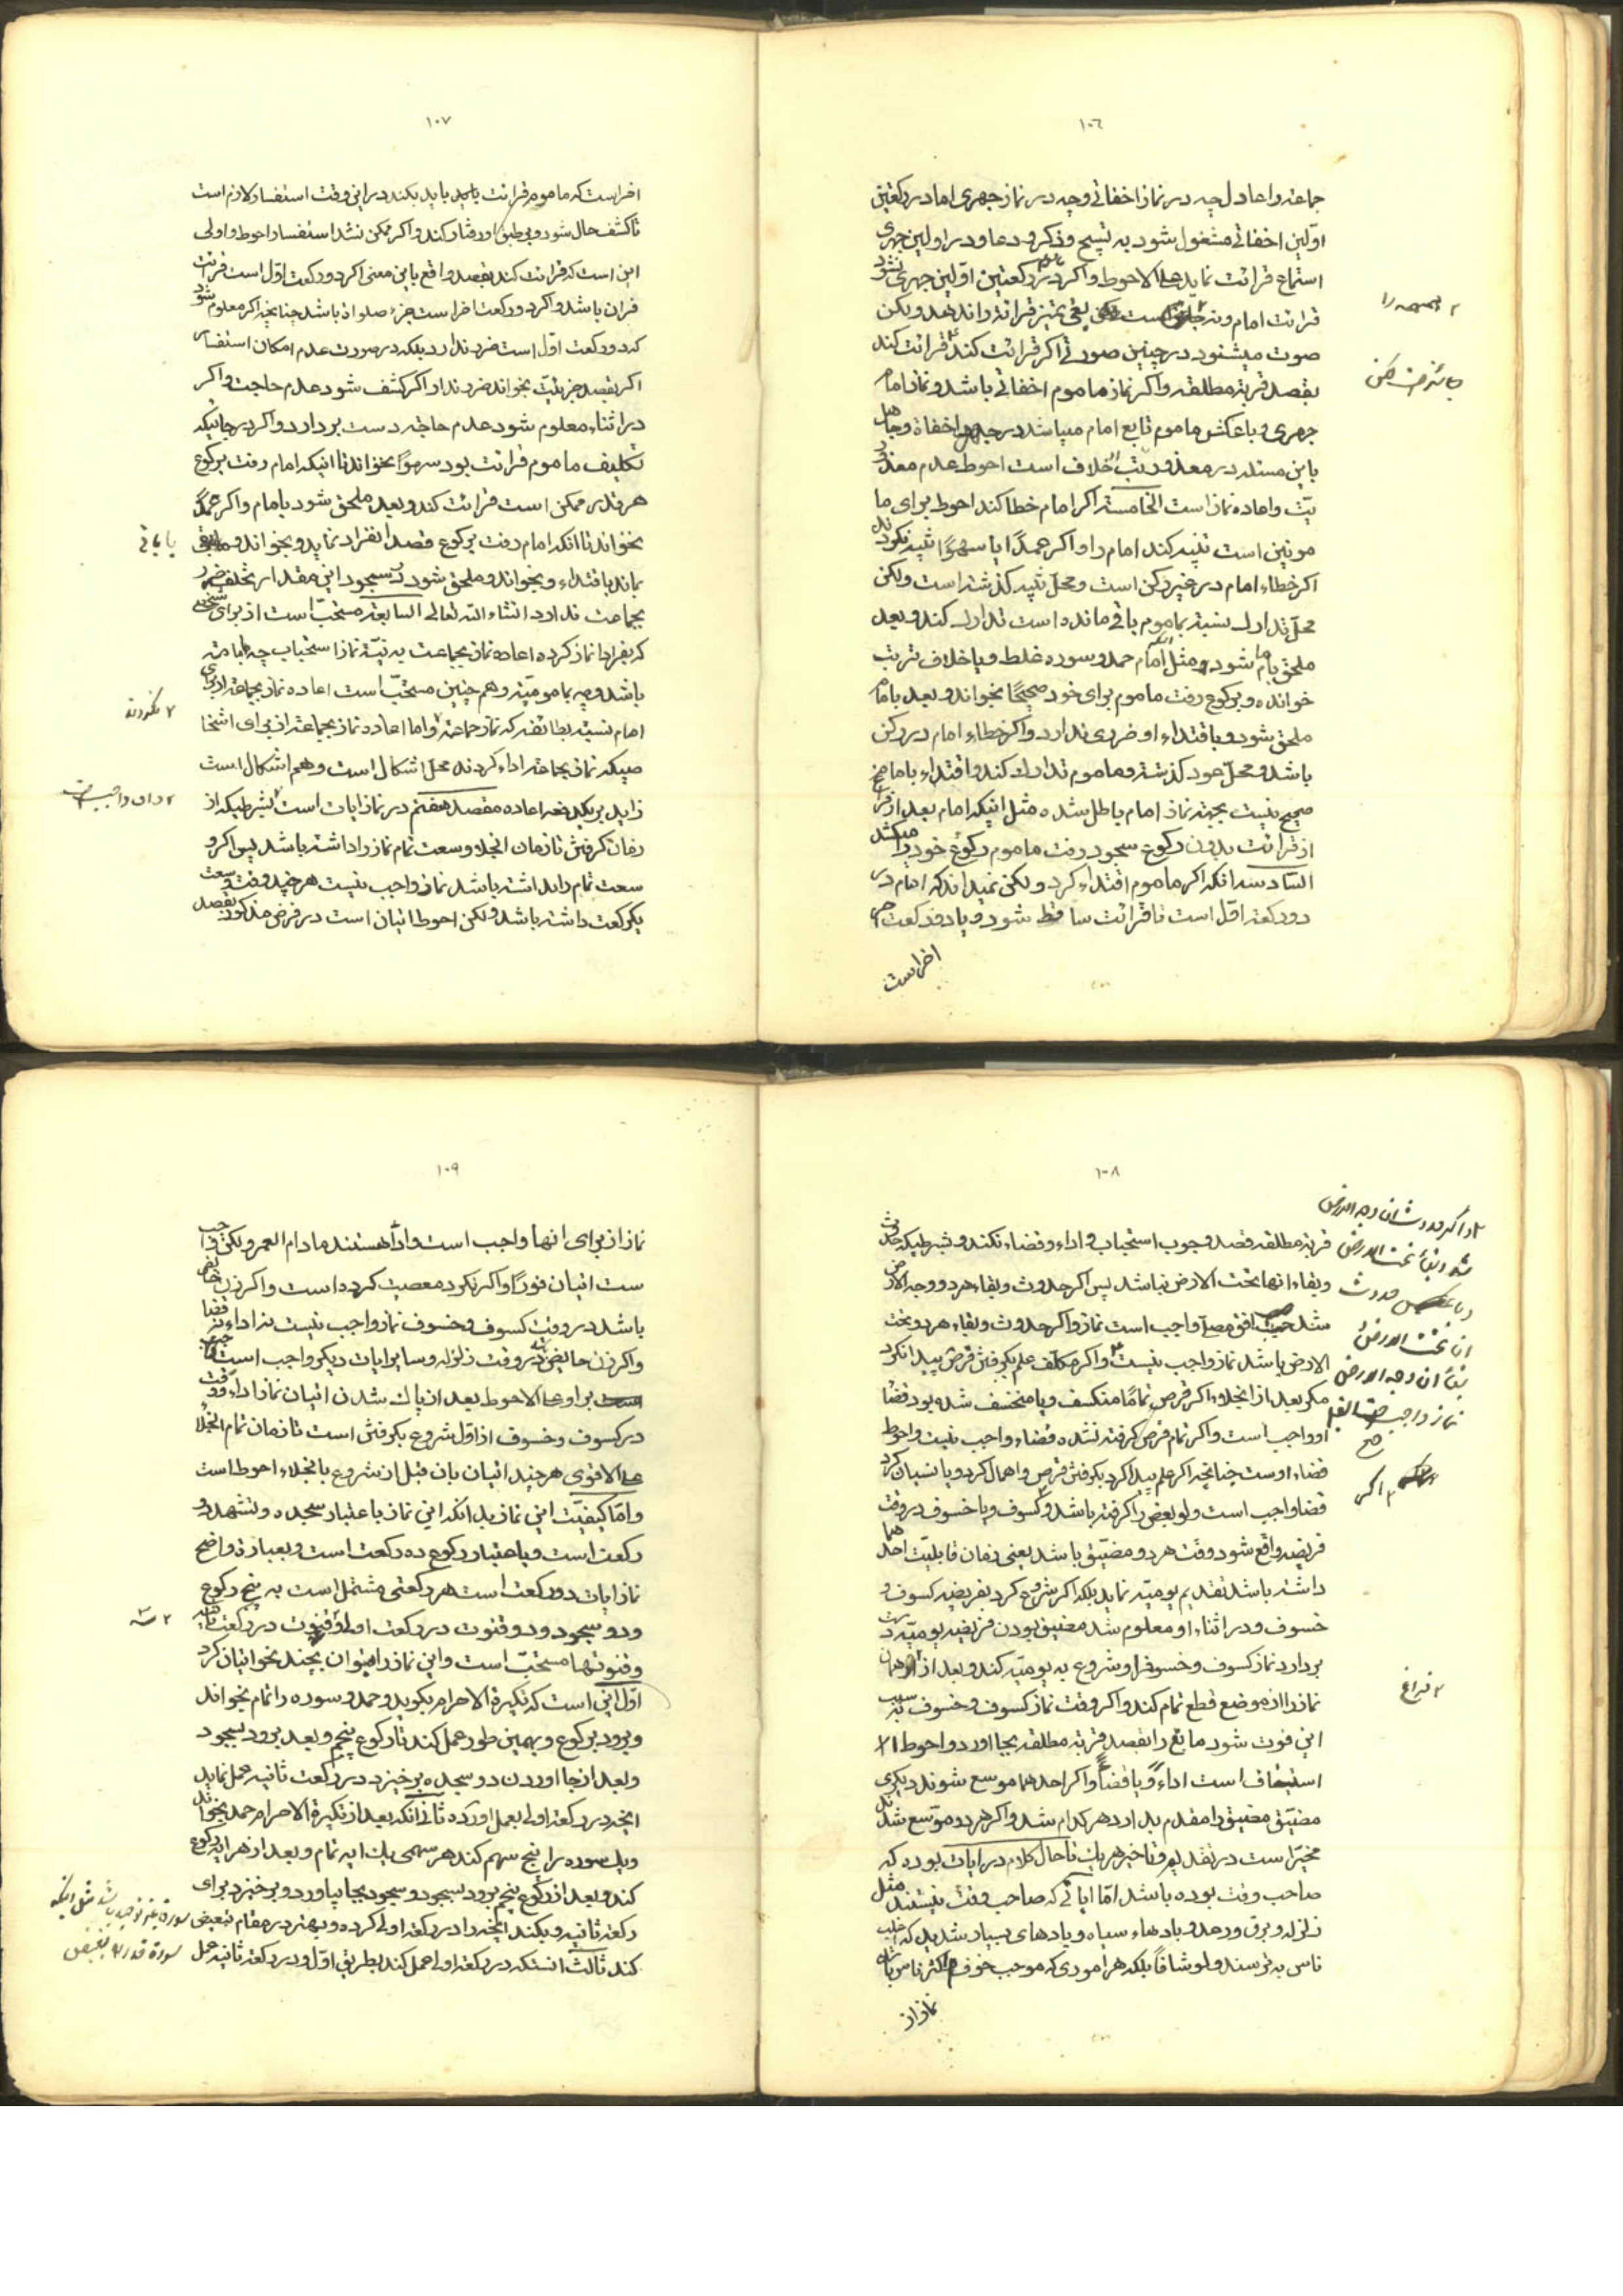 ١٠٦
جماعة و اعادل چه در نماز اخفاتی و چه در نماز جهری اما در رکعتین
اوّلین اخفاتی مشغول شود به تسبیح و ذکر و دعا و در اولین جهری
استماع قرائت نماید علی الاحوط و اگر در رکعتین اوّلین جهری نشنود
قرائت امام و نه همهمه را یعنی تمیز قرائة و اندهد و لکن
صوت میشنود در چنین صورتی اگر قرائت کند قرائت کند
بقصد قربة مطلقه و اگر نماز ماموم اخفاتی باشد و نماز امام
جهری و یا عکس ماموم تابع امام میباشد در جهر و اخفاة و جاهل
باین مسئله در معذوریتش خلاف است احوط عدم معذور
یّت و اعاده نماز است الخامسة اگر امام خطا کند احوط برای ما
مومین است تنبیه کند امام را و اگر عمدًا یا سهوًا تنبیه نکردند
اگر خطاء امام در غیر رکن است و محلّ تنبیه گذشته است و لکن
محلّ تدارک نسبت بماموم باقی مانده است تدارک کند و بعد
ملحق بامام شود و مثل امام حمد و سوره غلط و یا خلاف ترتیب
خوانده و برکوع رفت ماموم برای خود صحیحًا بخواند و بعد بامام
ملحق شود و باقتداء او ضرری ندارد و اگر خطاء امام در رکن
باشد و محلّ عود گذشته و ماموم تدارک کند و اقتداء بامام
صحیح نیست بجهة نماز امام باطل شده مثل اینکه امام بعد از
از قرائت بدون رکوع سجود رفت ماموم رکوع خود را میکند
السّادسه انکه اگر ماموم اقتداء کرد و لکن نمیداند که امام در
دو رکعت اوّل است تا قرائت ساقط شود و یا دو رکعت
اخر است
١٠٧
اخر است که ماموم قرائت باید بکند در این وقت استفسار لازم است
تا کشف حال شود و بر طبق او رفتار کند و اگر ممکن نشد استفسار احوط و اولی
این است که قرائت کند بقصد واقع باین معنی اگر دو رکعت اوّل است قرائت
قران باشد و اگر دو رکعت اخر است جزء صلوة باشد چنانچه اگر معلوم شود
که دو رکعت اوّل است ضرر ندارد بلکه در صورت عدم امکان استفسار
اگر بقصد جزئیّت بخواند ضرر ندارد اگر کشف شود عدم حاجت و اگر
در اثناء معلوم شود عدم حاجة دست بردارد و اگر در جائیکه
تکلیف ماموم قرائت بود سهوًا بخواند تا اینکه امام رفت برکوع
هر قدر ممکن است قرائت کند و بعد ملحق شود بامام و اگر عمدًا
نخواند تا انکه امام رفت برکوع قصد انفراد نماید و بخواند و
بماند باقتداء و بخواند و ملحق شود در سجود این مقدار تخلف ضرر
بجماعت ندارد انشاء اللّه تعالی السّابعة مستحبّ است از برای
که بفرادا نماز کرده اعاده نماز بجماعت به نیّة نماز استحباب چه بامامة
باشد و چه بمامومیّة و هم چنین مستحبّ است اعاده نماز بجماعة از برای
امام نسبة بطائفه که نماز جماعة و اما اعاده نماز بجماعة از برای اشخا
صیکه نماز بجماعة اداء کردند محلّ اشکال است و هم اشکال است
زاید بر یکدفعه اعاده مقصد هفتم در نماز ایات است بشرطیکه از
زمان گرفتن تا زمان انجلاء وسعت تمام نماز را داشته باشد پس اگر و
سعت تمام را نداشته باشد نماز واجب نیست هر چند وقت وسعت
یکرکعت داشته باشد و لکن احوط اتیان است در فرض مذکور بقصد
یا باقی
١٠٨
قربة مطلقه قصد وجوب استحباب و اداء و قضاء نکند و بشرطیکه حدوث
و بقاء انها تحت الارض نباشد پس اگر حدوث و بقاء هر دو وجه الارض
مثل افق مصلّا واجب است نماز و اگر حدوث و بقاء هر دو تحت
الارض باشد نماز واجب نیست و اگر مکلّف علم بگرفتن قرص پیدا نکرد
مگر بعد از انجلاء اگر قرص تمامًا منکسف و یا منخسف شده بود قضا
او واجب است و اگر تمام قرص گرفته نشده قضاء واجب نیست و احوط
قضاء اوست چنانچه اگر علم پیدا کرد بگرفتن قرص و اهمال کرد و یا نسیان کرد
قضا واجب است و لو بعضی را گرفته باشد و کسوف و یا خسوف در وقت
فریضه واقع شود و وقت هر دو مضیّق باشد یعنی زمان قابلیّت احدهما
داشته باشد تقدیم یومیّه نماید بلکه اگر شروع کرد بفریضه کسوف و
خسوف و در اثناء او معلوم شد مضیّق بودن فریضه یومیّه دست
بردارد نماز کسوف و خسوف را و شروع به یومیّه کند و بعد از همان
نماز را از موضع قطع تمام کند و اگر وقت نماز کسوف و خسوف به سبب
این فوت شود مابقی را بقصد قربة مطلقه بجا اورد و احوط ٢١
استیناف است اداءً و یا قضاءً و اگر احدهما موسع شوند دیگری
مضیّق مضیّق را مقدم بدارد هر کدام شد و اگر هر دو موسّع شد
مخیّر است در تقدیم و تاخیر هر یک تا حال کلام در ایات بوده که
صاحب وقت بوده باشد امّا ایاتی که صاحب وقت نیستند مثل
زلزله و برق و رعد و بادهاء سیاه و بادهای بسیار شدید که اغلب
ناس به ترسند و لو شافاً بلکه هر اموری که موجب خوف اکثر ناس باشد
نماز از
١٠٩
نماز از برای انها واجب است و اداً هستند مادام العمر و لکن واجب
ست اتیان فورًا و اگر نکرد معصیت کرده است و اگر زن حائض
باشد در وقت کسوف و خسوف نماز واجب نیست نه اداء نه قضا
و اگر زن حایض در وقت زلزله و سایر ایات دیگر واجب است
بر او علی الاحوط بعد از پاک شدن اتیان نماز اداءً وقت
در کسوف و خسوف از اوّل شروع بگرفتن است تا زمان تمام انجلا
علی الاقوی هر چند اتیان بان قبل از شروع بانجلاء احوط است
و امّا کیفیّت این نماز بدانکه این نماز باعتبار سجده و تشهد دو
رکعت است و باعتبار رکوع ده رکعت است و بعبارة واضح
نماز ایات دو رکعت است هر رکعتی مشتمل است به پنج رکوع
و دو سجود و دو قنوت در رکعت اولی و قنوت در رکعت
و قنوتها مستحبّ است و این نماز را میتوان بچند نحو اتیان کرد
اوّل این است که تکبیرة الاحرام بگوید و حمد و سوره را تمام بخواند
و برود برکوع و بهمین طور عمل کند تا رکوع پنجم و بعد برود بسجود
و بعد از بجا اوردن دو سجده برخیزد در رکعت ثانیه عمل نماید
انچه در رکعت اولی بعمل اورده ثانی انکه بعد از تکبیرة الاحرام حمد بخواند
و یک سوره را پنج سهم کند هر سهمی یک ایه تمام و بعد از هر ایه رکوع
کند و بعد از رکوع پنجم برود بسجود و سجود بجا بیاورد و برخیزد برای
رکعت ثانیه و بکند انچه را در رکعت اولی کرده و بهتر در مقام تبعیض
کند ثالث انستکه در رکعت اولی عمل کند بطریق اوّل و در رکعت ثانیه عمل